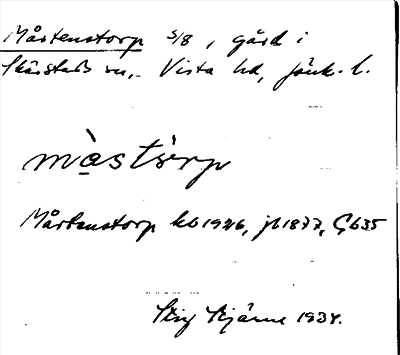 Mårtenstorp 3/8, gård i
Skärstads sn., Vista hd, Jönk. l.
màstòrp
Mårtenstorp kb 1926, jb 1877, Gb35
Stig Stjärne 1934.